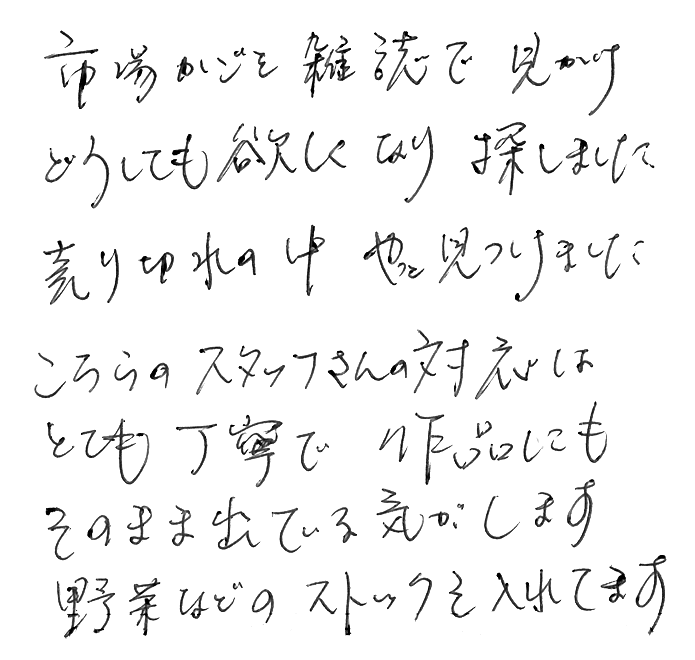 市場かごを雑誌で見かけ
どうしても欲しくなり探しました
売り切れの中やっと見つけました
こちらのスタッフさんの対応は
とても丁寧で作品にも
そのまま出ている気がします
野菜などのストックを入れてます